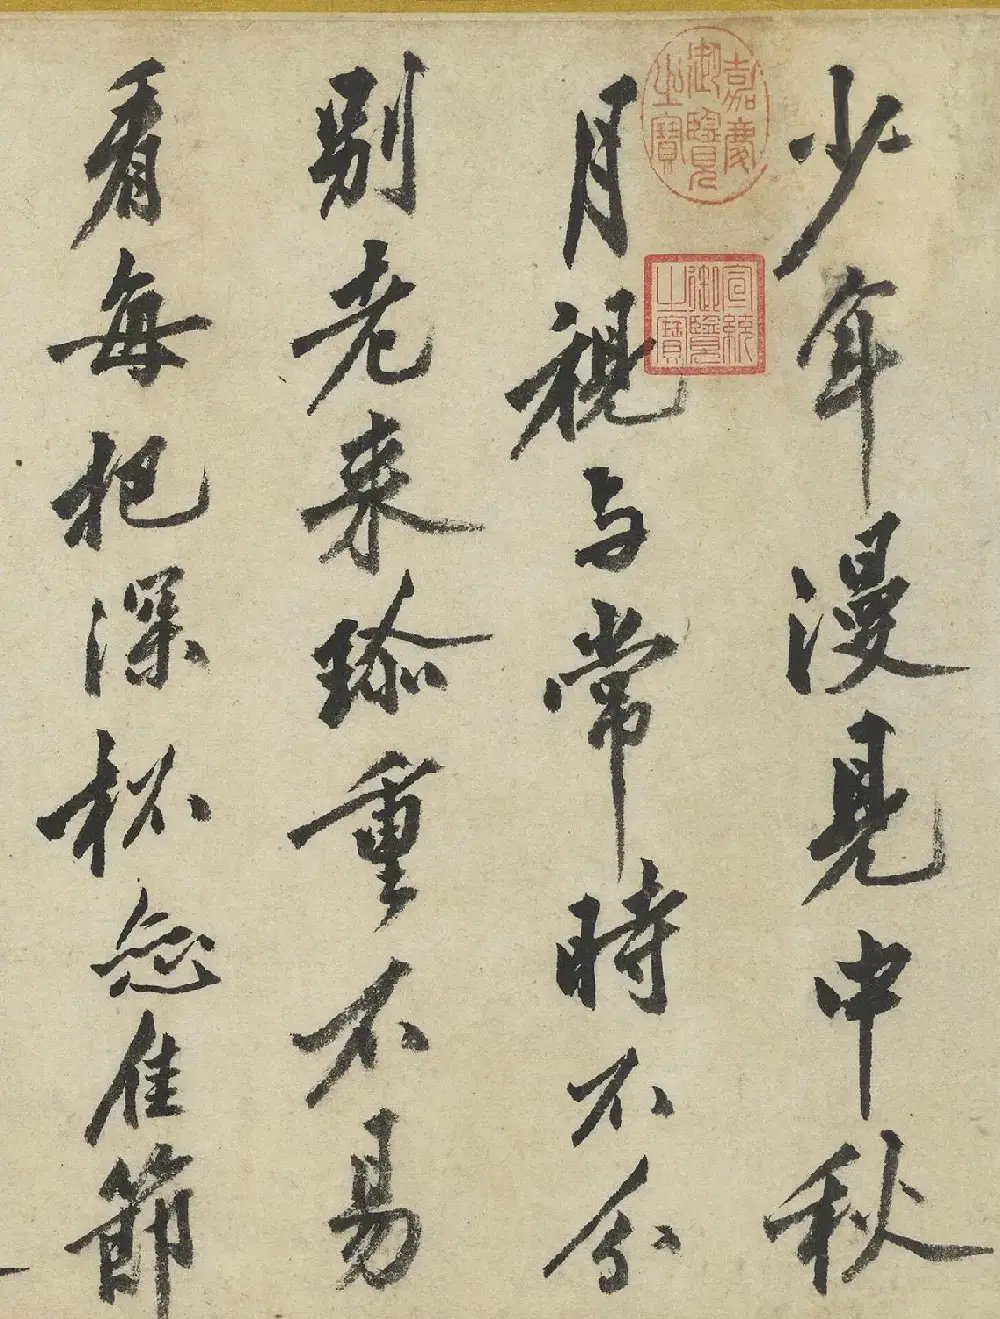 少年漫見中秋
月視与常時不分
別老来珎重不易
看每把深杯佳節
嘉慶
御覽
之寶
宣統
御覽
之寶